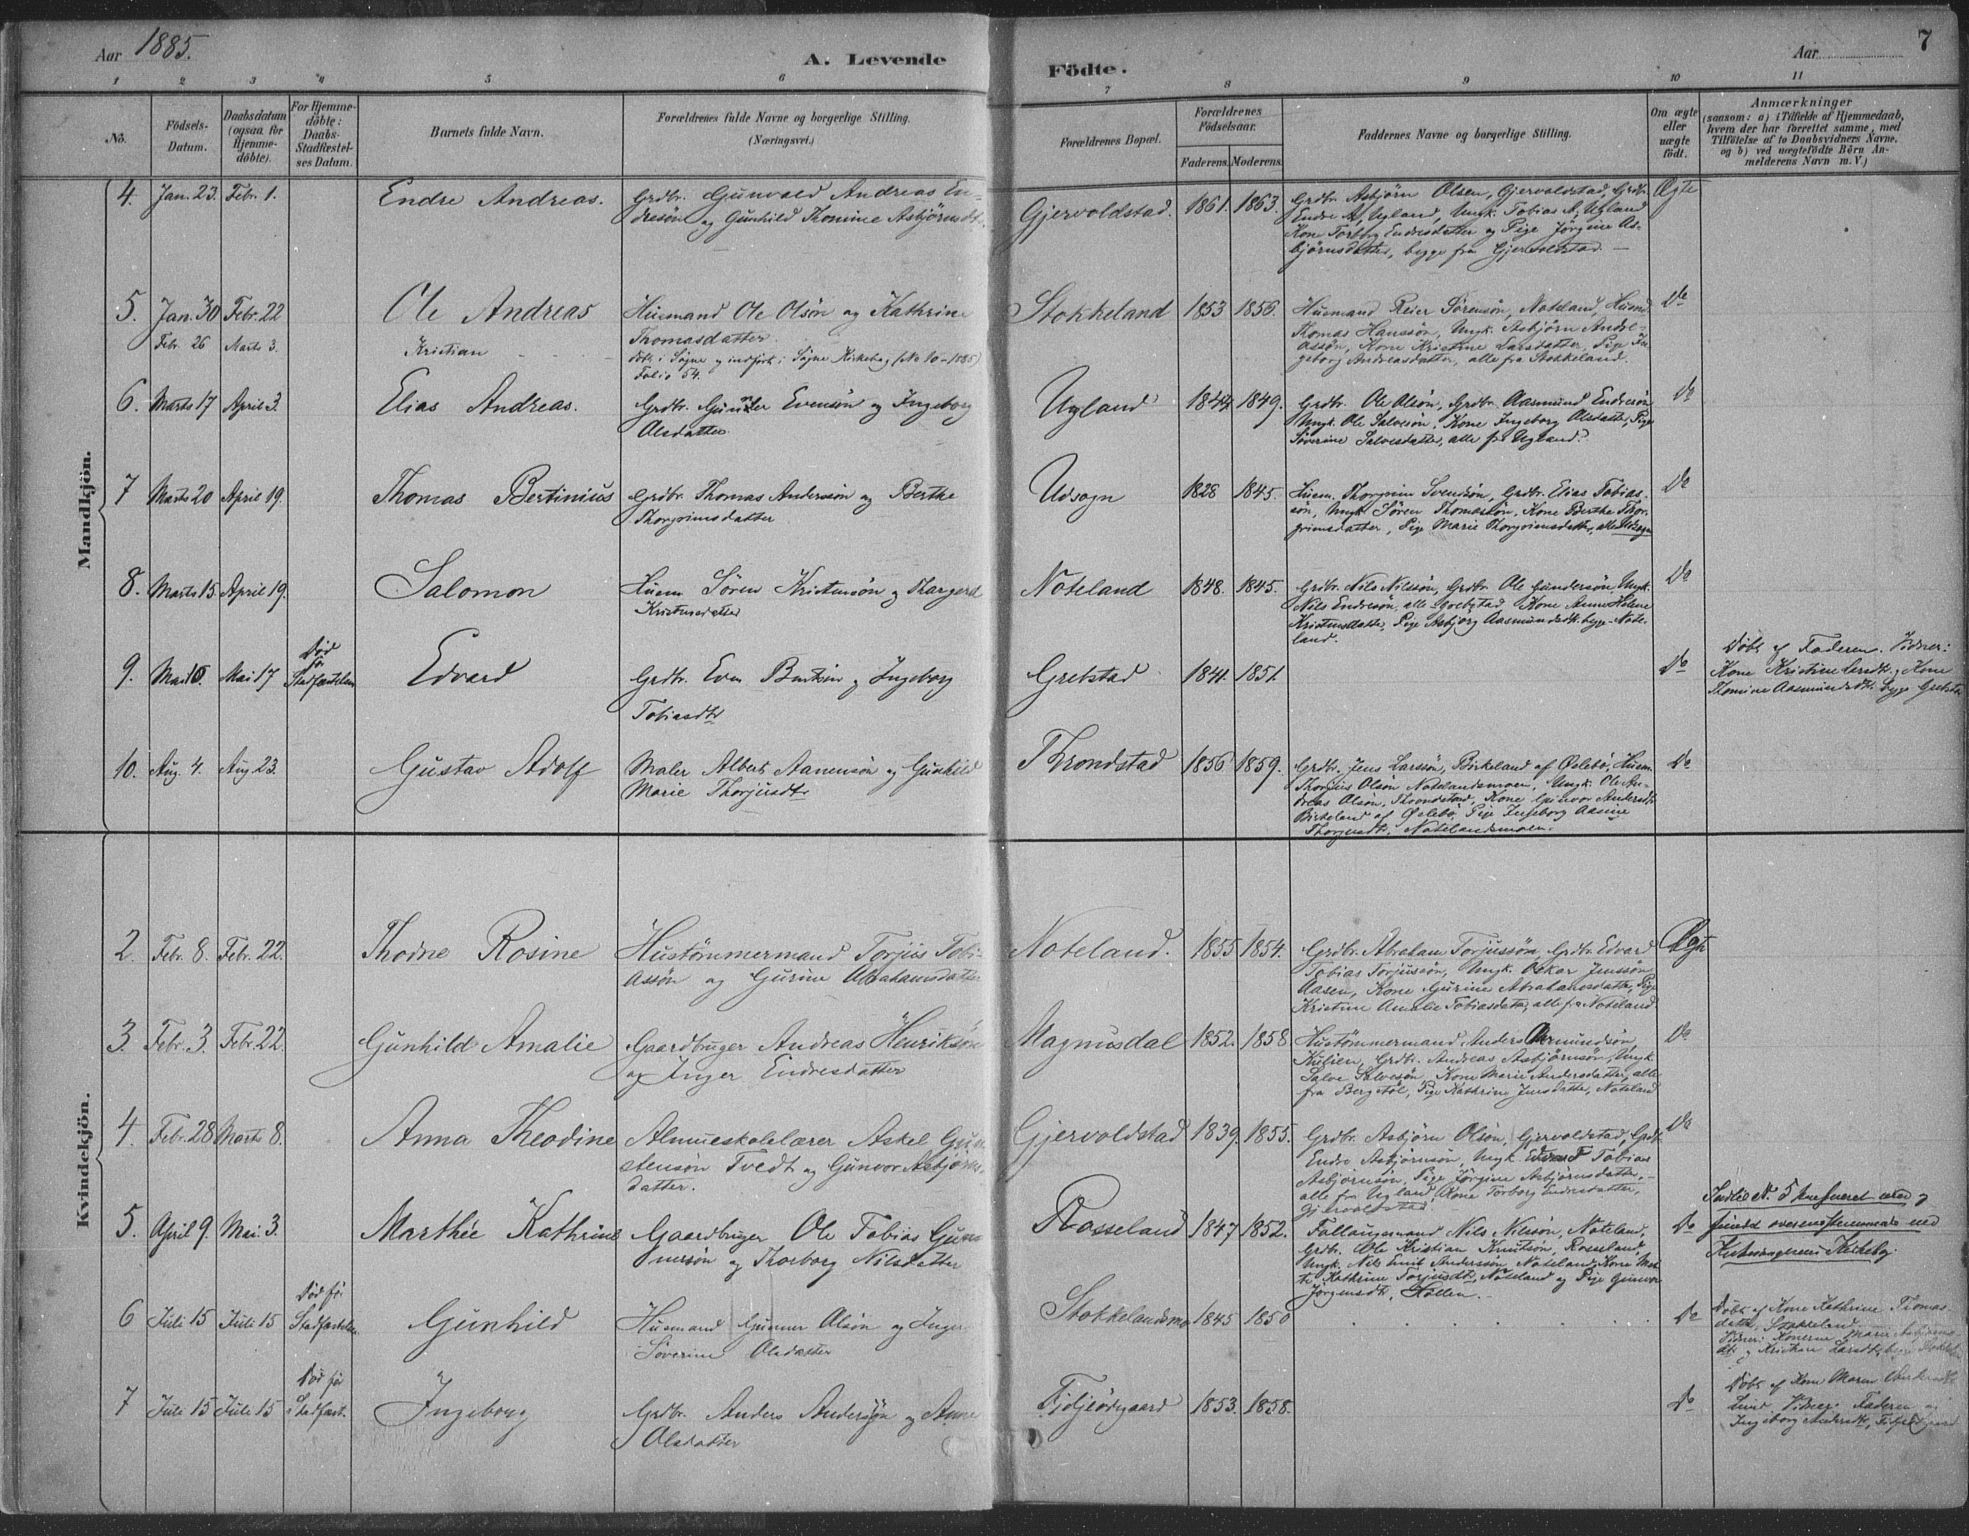 Aar 1885.
A. Levende
Födte.
Aar
7
1 2 3 4 5 6 7 8 9 10 11
No.
Födsels-
Datum.
Daabsdatum
(ogsaa for
Hjemme-
döbte).
For Hjemme-
döbte:
Daabs-
Stadfæstel-
ses Datum.
Barnets fulde Navn.
Forældrenes fulde Navne og borgerlige Stilling.
(Næringsvei.)
Forældrenes Bopæl.
Forældrenes
Födselsaar.
Faderens. Moderens.
Faddernes Navne og borgerlige Stilling.
Om ægte
eller
uægte
födt.
Anmærkninger
(saasom: a) i Tilfælde af Hjemmedaab,
hvem der har forrettet samme, med
Tilföielse af to Daabsvidners Navne,
og b) ved uægtefödte Börn An-
melderens Navn m. V.)
Mandkjön.
4. Jan. 23. Febr. 1. Endre Andreas.
Grdbr. Gunvald Andreas En-
dresön og Gunhild Thomine Asbjörnsdt.
Gjervoldstad. 1861. 1863.
Grdbr. Asbjörn Olsen, Gjervoldstad, Grdbr.
Endre A. Ugland, Ungk. Tobias A. Ugland
Kone Torborg Endresdatter og Pige Jörgine As-
björnsdatter, begge fra Gjervoldstad.
Ægte
5. Jan. 30 Febr. 22 Ole Andreas
Husmand Ole Olsön og Kathrine
Thomasdatter
Stokkeland 1853 1856.
Husmand Reier Sörensön, Noteland, Husmd
Thomas Hanssön, Ungk. Asbjörn Andre-
assön, Kone Kristine Larsdatter, Pige In-
geborg Andreasdatter, alle fra Stokkeland.
Do
Febr. 26 Marts 3. Kristian
döbt i Søgne og indført i Søgne Kirkebog (No 10 - 1885)
Folio 54.
6. Marts 17 April 3. Elias Andreas.
Grdbr. Gunder Evensön og Ingeborg
Olsdatter
Ugland 1844 1849.
Grdbr. Ole Olsön, Grdbr. Aasmund Endresön
Ungk. Ole Salvesön, Kone Ingeborg Olsdatter, Pige
Söverine Salvesdatter, alle fra Ugland.
Do
7 Marts 20 April 19. Thomas Bertinius
Grdbr. Thomas Anderssön og Berthe
Thorgrimsdatter
Udsogn 1828 1845.
Husm. Thorgrim Svendsön, Grdbr. Elias Tobias-
sön, Ungk. Sören Thomassön, Kone Berthe Thor-
grimsdatter, Pige Marie Thorgrimsdatter, alle Udsogn
Do
8. Marts 15 April 19. Salomon
Husm. Sören Kristensön og Thargerd
Noteland 1848. 1845.
Grdbr. Nils Nilssön, Grdbr. Ole Gundersön, Ungk.
Nils Endresön, alle Kone Anne Helene
Pige Asbjörg Aasmundsdt. begge Note-
land.
Do
9. Mai 17 Död
før
Stadfæstelsen Edvard
Grdbr. Even Bentsön og Ingeborg
Tobiasdtr
Gretstad 1841. 1851.
Do
Döbt af Faderen. Vidner:
Kone Kristine og Kone
Thomine Aasmundsdt. begge Gretstad
10. Aug. 4. Aug. 23. Gustav Adolf
Maler Albert Aanensön og Gunhild
Marie Thorjusdtr
Throndstad 1856 1859.
Grdbr. Jens Larssön, Birkeland af Öslebö, Husm.
Thorjus Olsön Notelandsmoen, Ungk. Ole An-
dreas Olsön, Throndstad, Kone Gunvor Andersdt.
Birkeland af Öslebö, Pige Ingeborg Aasine
Thorjusdt. Notelandsmoen.
Do
Kvindekjön.
2 Febr. 8. Febr. 22. Thorine Rosine
Hustömmermand Torjus Tobi-
assön og Gurine Abrahamsdatter
Noteland. 1855 1854.
Grdbr. Abraham Torjussön, Grdbr. Edvard
Tobias Torjussön, Ungk. Oskar Jenssön
Aasen, Kone Gurine Abrahamsdatter, Pige
Kristine Amalie Tobiasdatter, alle fra Noteland.
Ægte
3. Febr. 3. Febr. 22. Gunhild Amalie
Gaardbruger Andreas Henriksön
og Inger Endresdatter
Magnusdal 1852. 1858
Hustömmermand Anders Aamundsön,
Kulien, Grdbr. Andreas Asbjörnsön, Ungk.
Salve Salvesön, Kone Marie Andersdatter, alle
fra Bergstöl, Pige Kathrine Jensdatter, Noteland
Do
4. Febr. 28 Marts 8. Anna Theodine
Almueskolelærer Askel Gun-
stensön Tvedt og Gunvor Asbjörns-
datter.
Gjervoldstad 1839. 1855.
Grdbr. Asbjörn Olsön, Gjervoldstad, Grdbr.
Endre Asbjörnsön, Ungk. Edvard Tobias
Asbjörnsön, Pige Jörgine Asbjörnsdatter,
alle fra Ugland, Kone Torborg Endresdatter,
Gjervoldstad.
Do
5. April 9. Mai 3. Marthe Kathrine
Gaardbruger Ole Tobias Gun-
nersön og Thorborg Nilsdatter
Rosseland 1847 1852.
Nils Nilssön, Noteland,
Grdbr. Ole Kristian Knutsön, Rosseland,
Ungk. Nils Emil Anderssön, Noteland, Kone Mar-
te Kathrine Torjusdtr, Noteland og Pige Gunvor
Jörgensdt, Hollen.
Do
Indtil N. 5 konfereret
fundet overensstemmende med
Kirkebog
6 Juli 15 Juli 15 Död før
Stadfæstelsen Gunhild
Husmand Gunner Olsön og Inger
Söverine Olsdatter
Stokkelandsmo 1845 1850
Do
Döbt af Kone Kathrine Thomas-
datter, Stokkeland.
Vidner: Konerne Marie
og Kristine Larsdt. begge Stokkeland
7 Juli 15 Juli 15 Död før
Stadfæst. Ingeborg
Grdbr. Anders Andersön og Anne
Olsdatter
Fidjeödegaard 1853. 1858.
Do
Döbt af Kone Maren
Lund Vidner: Faderen og
Ingeborg Andersdt, Fidjeödegaard